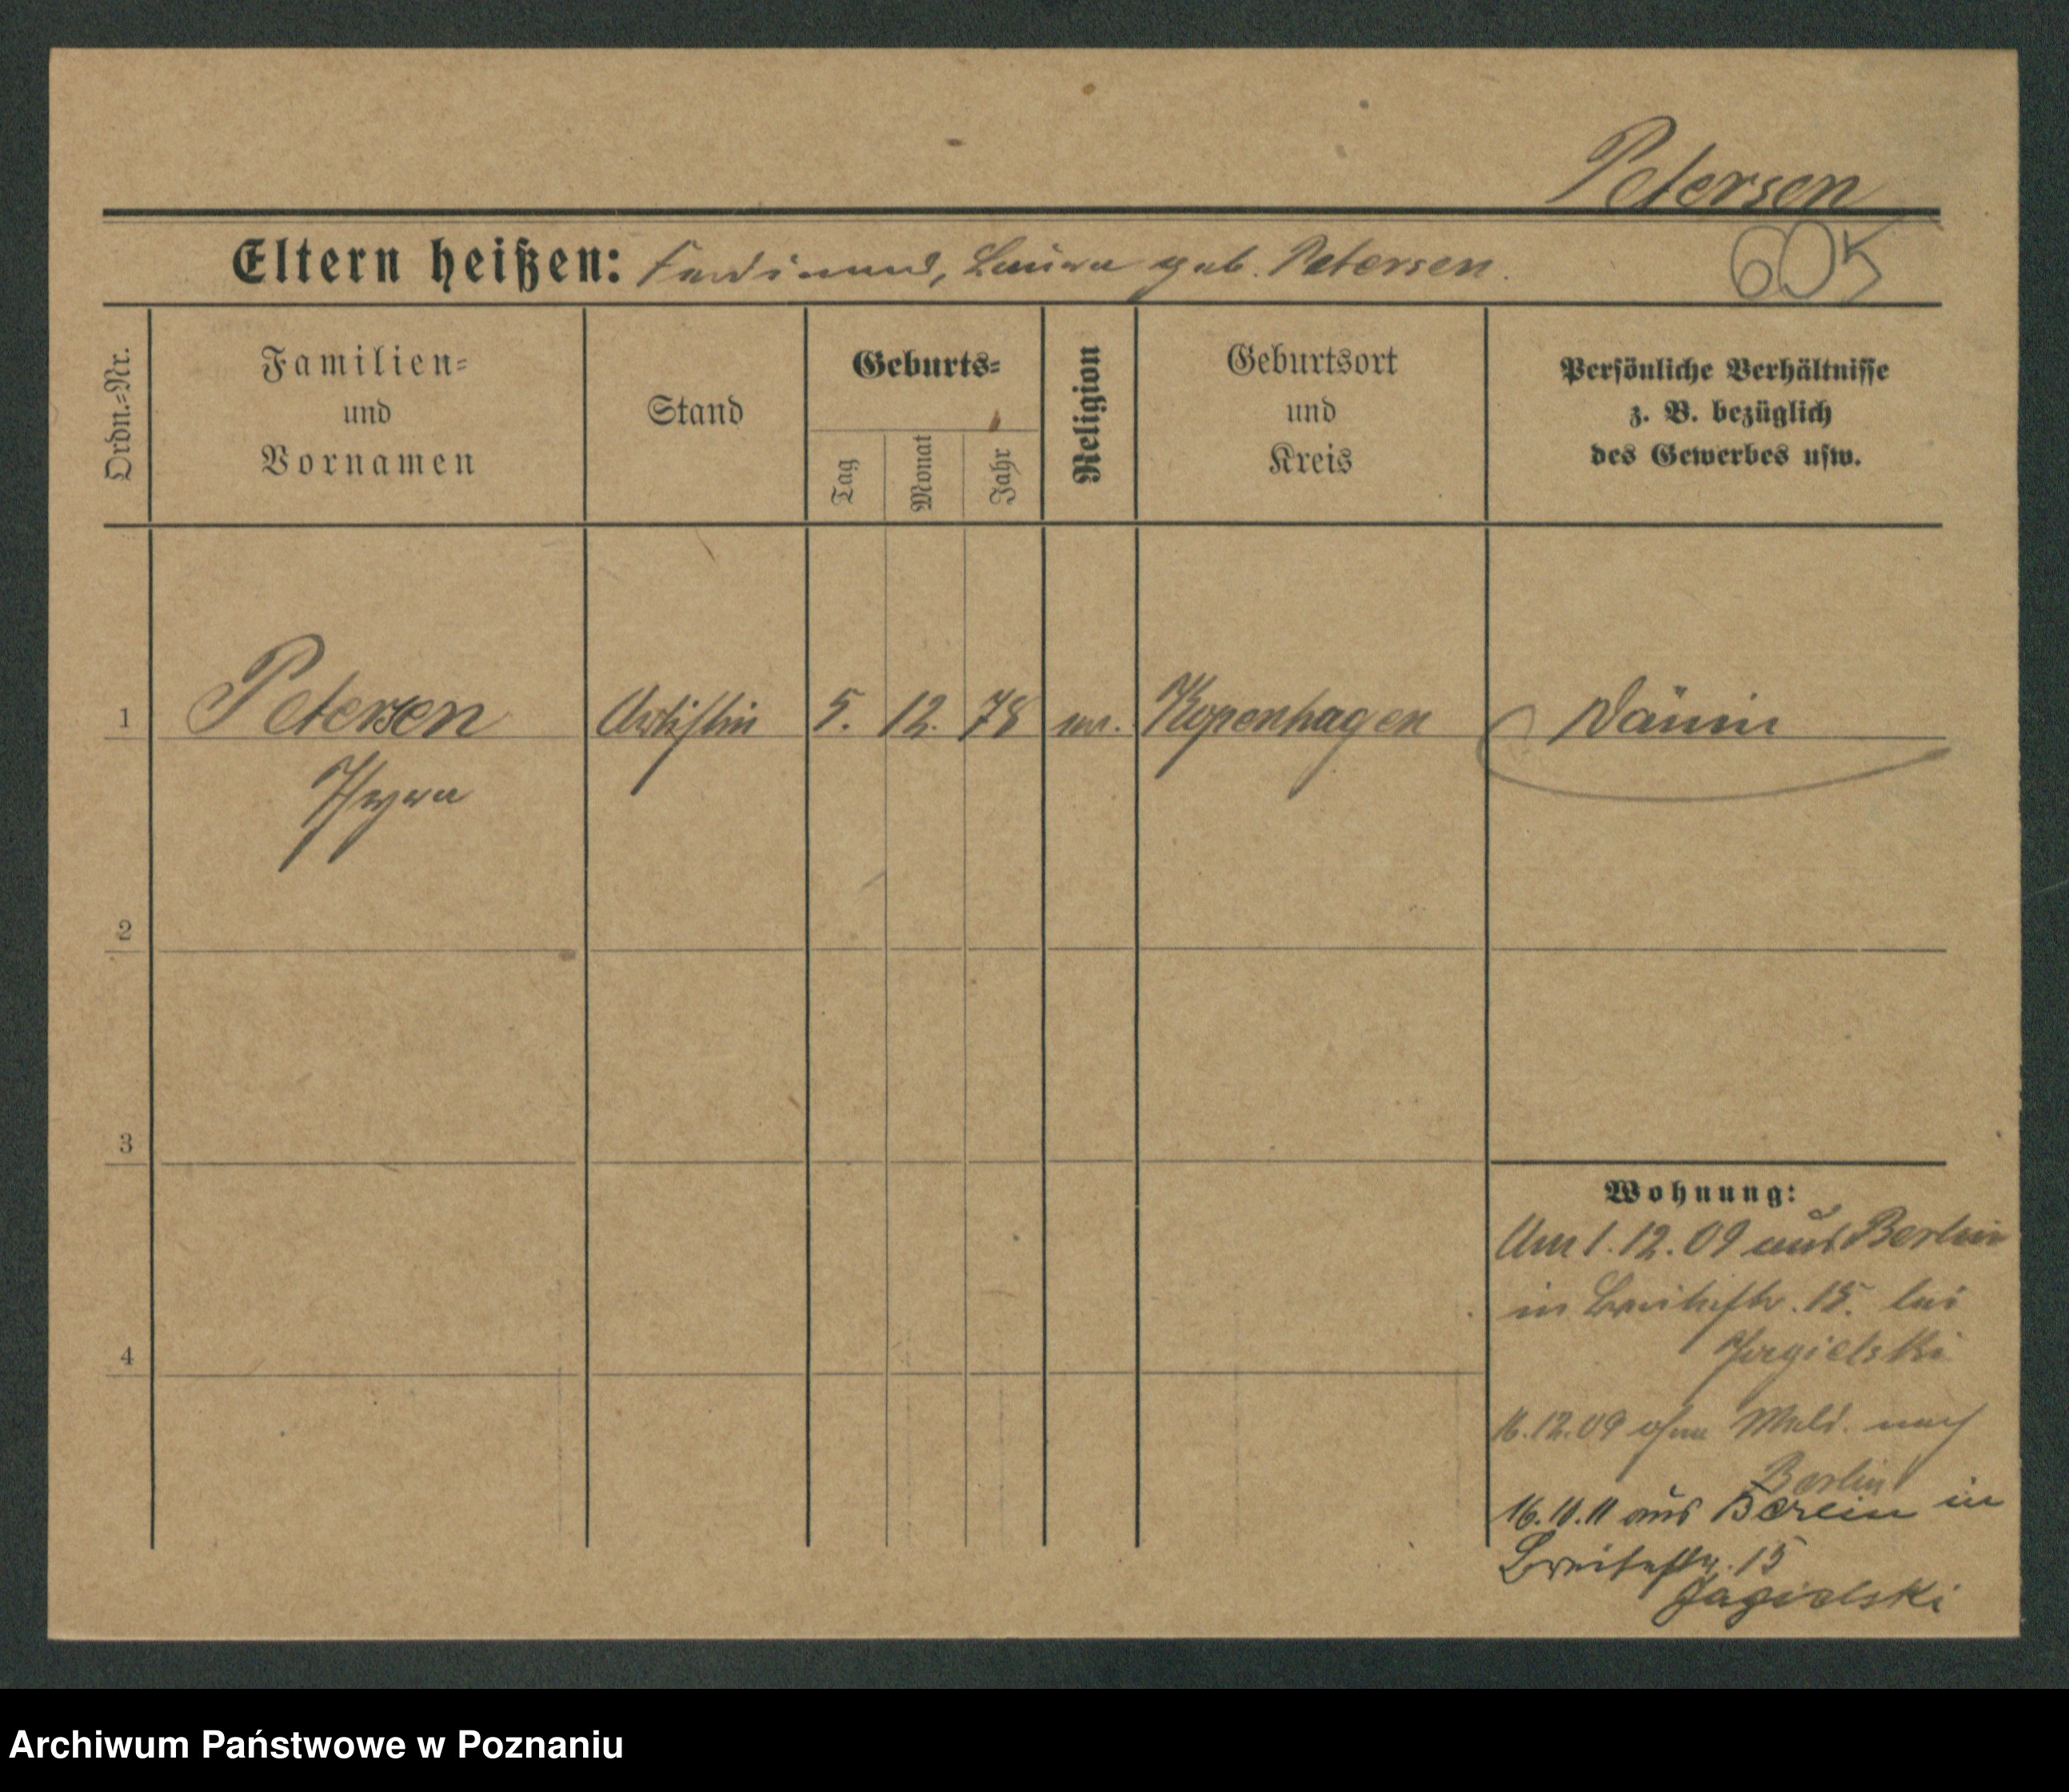 Petersen
Eltern heißen: Ferdinand, Laura geb. Petersen.
605
Ordn.=Nr.
Familien=
und
Vornamen
Stand
Geburts=
Tag
Monat
Jahr
Religion
Geburtsort
und
Kreis
Persönliche Verhältnisse
z. B. bezüglich
des Gewerbes usw.
1 Petersen Artistin 5. 12. 78 Kopenhagen Dänin
Thyra
2
3
4
Wohnung:
Am 1.12.09 aus Berlin
in Breitestr. 15. bei
Jagielski
16.12.09 ohne Meld. nach
Berlin
aus Berlin in
Breitestr. 15
Jagielski
Archiwum Państwowe w Poznaniu